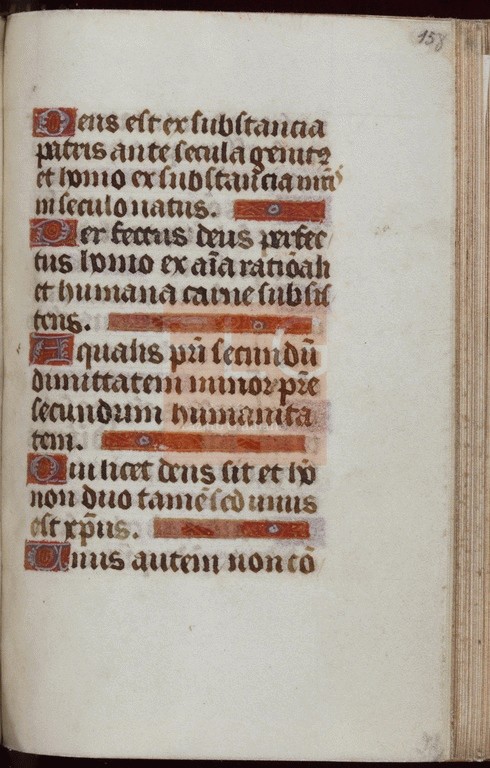 158
Deus est ex substancia
patris ante secula genitꝰ
et homo ex substancia mr̄is
in seculo natus.
Perfectus deus perfec
tus homo ex aīa ratiōali
et humana carne subsis
tens.
Aqualis pri secundū
diuinitatem minor pr̄e
secundum humanita
tem.
Qui licet deus sit et hō
non duo tamē sed unus
est xp̄us.
Unus autem non cō